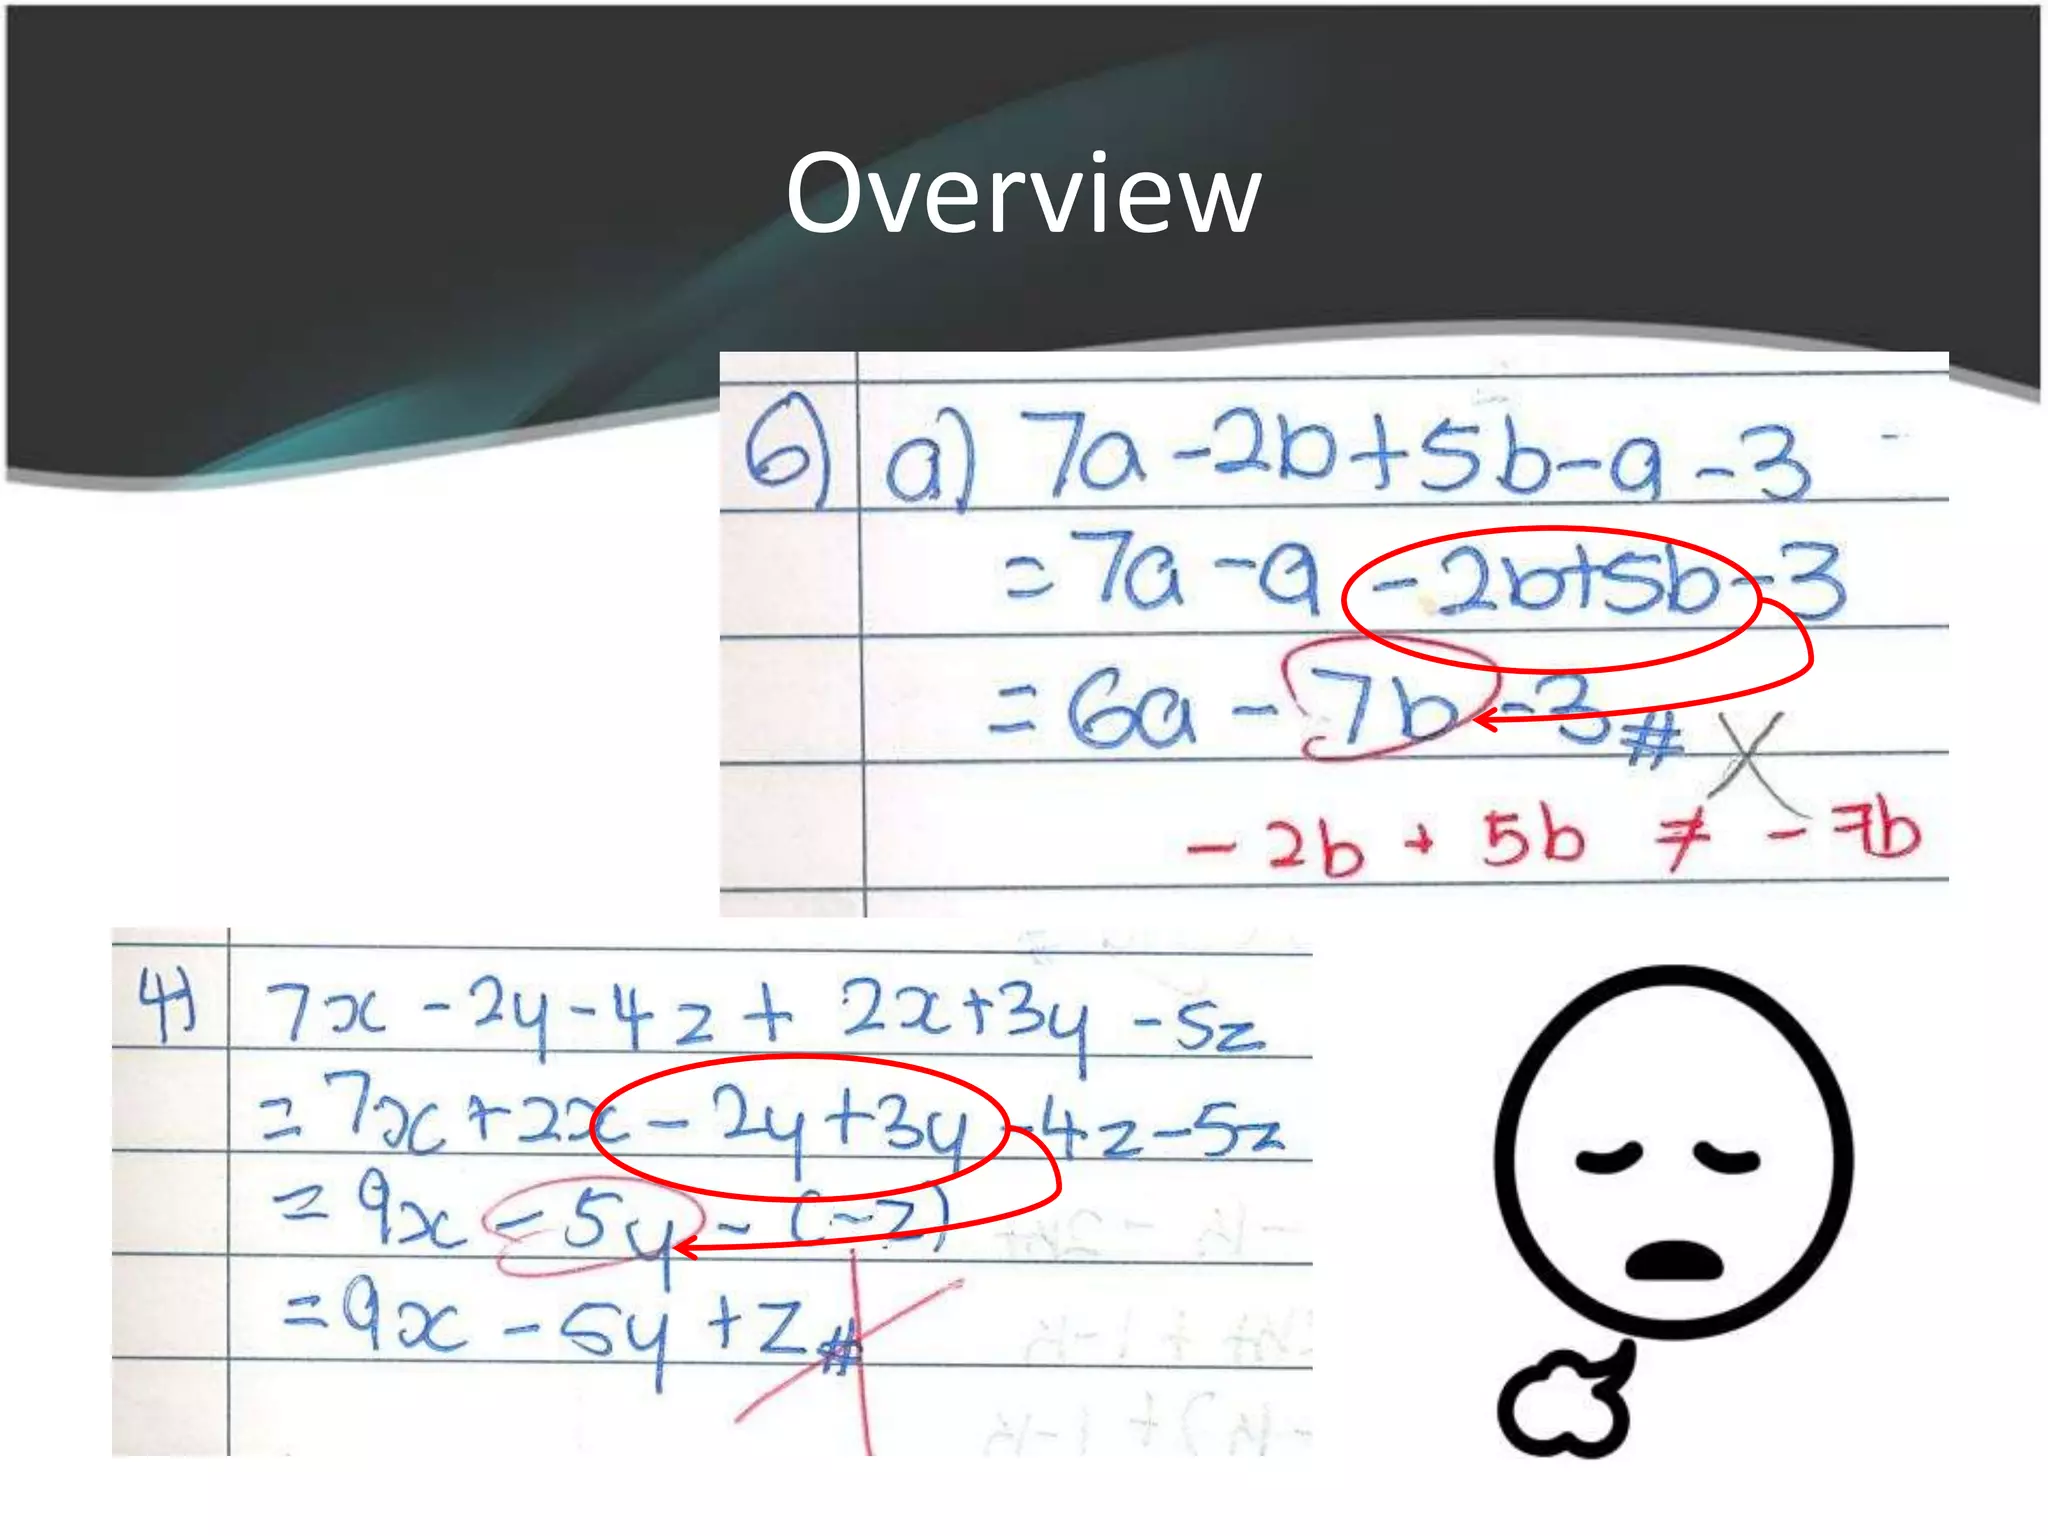 Overview
6) a) 7a-2b+5b-a-3
=7a-a-2b+5b-3
=6a-7b-3#
-2b+5b≠-7b
4) 7x-2y-4z+2x+3y-5z
=7x+2x-2y+3y-4z-5z
=9x-5y-(-z)
=9x-5y+z#